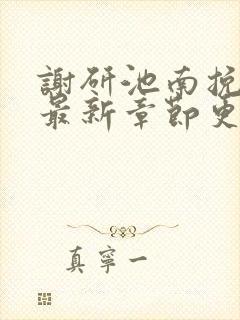 謝硏池南挽
最新章節更
真寧一